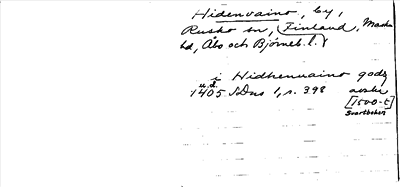 Hidenvaino, by,
Rusko sn, (Finland, Masku
hd, Åbo och Björneb. l.)
i Hidhenuaino godz
u.d.
1405 SDns 1, s. 398 avskr
[1500-t]
Svartboken